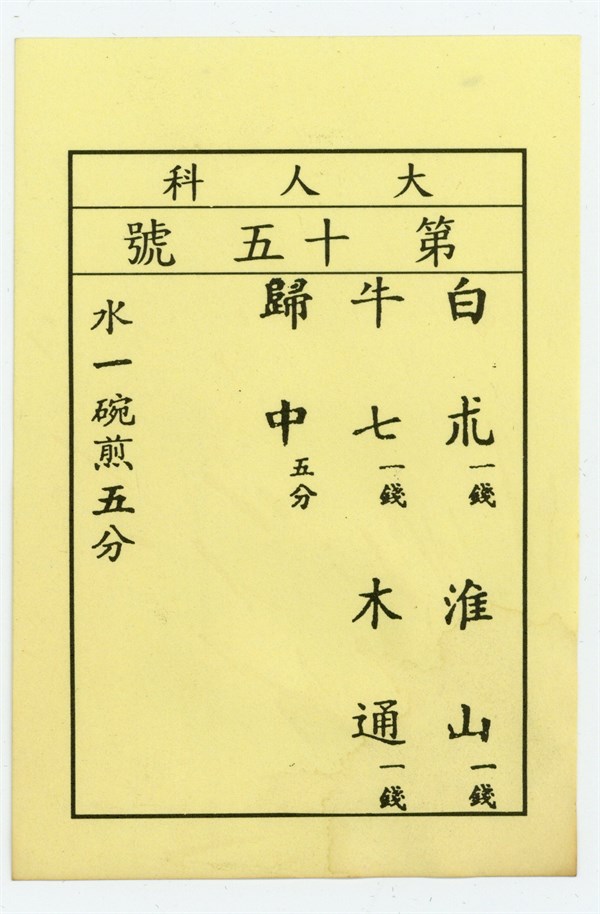 大人科
第十五號
白朮一錢 淮山一錢
牛七一錢 木通一錢
歸中五分
水一碗煎五分